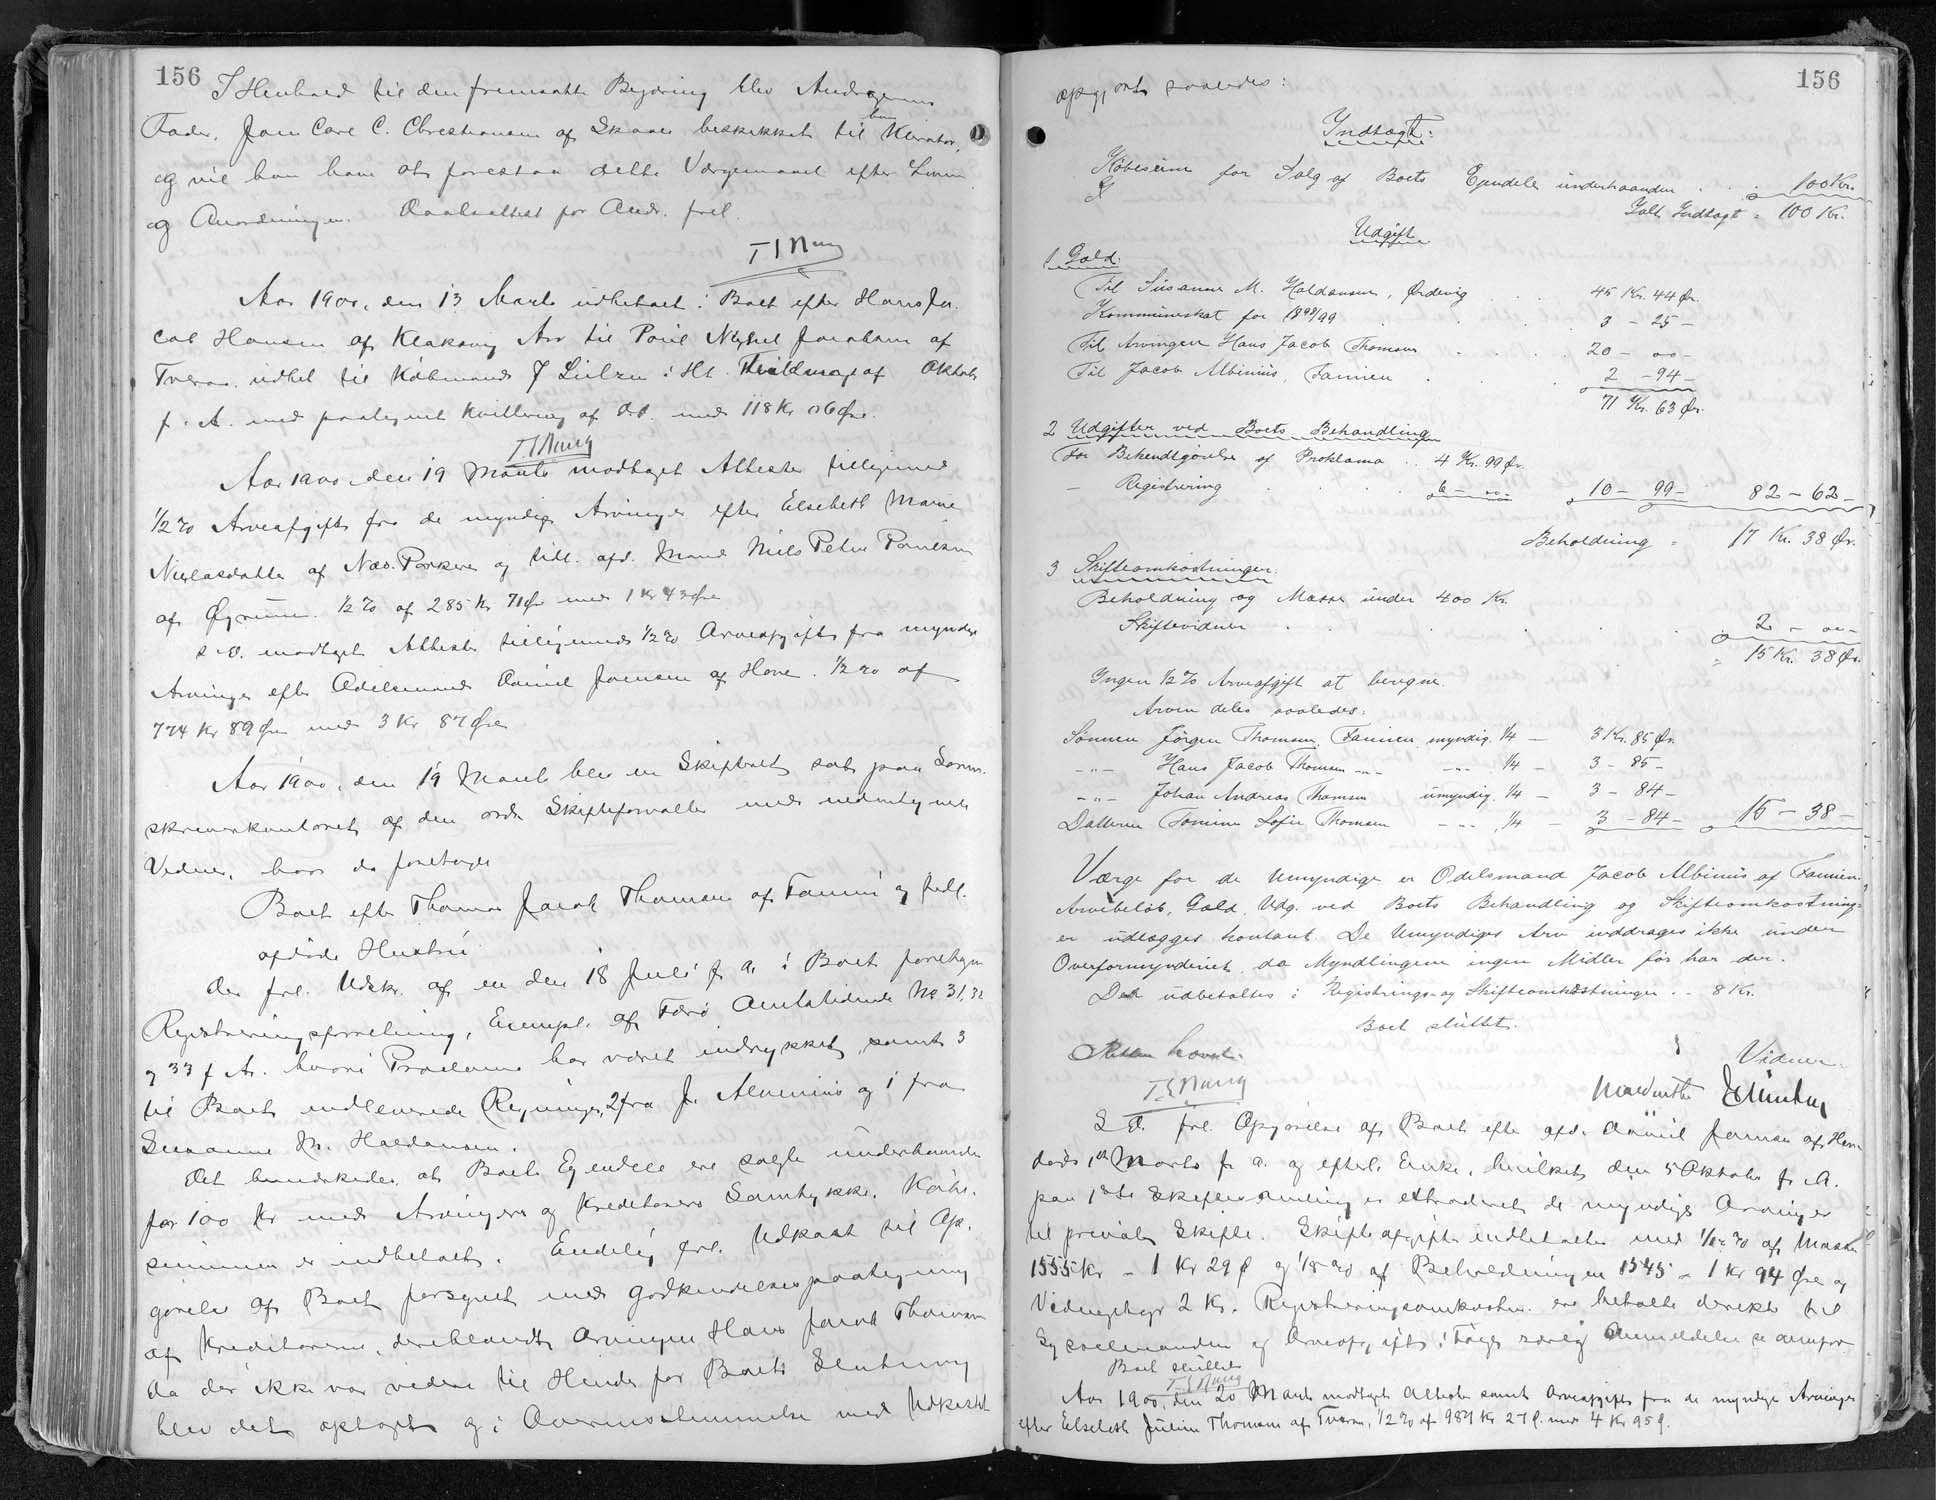 156
I Henhold til den fremsatte Begæring blev Andragerens
Fader, Joen Carl C. Christiansen af Skaale beskikket til hans Kurator,
og vil han have at forestaa dette Værgemaal efter Loven
og Anordningen. Daabsattest for Andr. frel.
Aar 1900, den 13 Marts udbetalt i Boet efter Hans Ja-
cob Hansen af Klaksvig Arv til Poul Joensen af
Tveraa udbet til Købmand J Lützen i Ht. af Oktob
f. A. med paategnet Kvittering af d.d. med 118 Kr 06 Øre.
Aar 1900 den 19 Marts modtaget Attester tilligemed
1/2 % Arveafgift fra de myndige Arvinger efter Elsebeth Marie
Niclasdatter af Næs. Porkere og tidl. afd. Mand Niels Peter Poulsen
af Øyrum. 1/2 % af 285 Kr 71 Øre med 1 Kr 43 Øre
s. D. modtaget Attester tilligemed 1/2 % Arveafgift fra myndige
Arvinger efter Odelsmand Daniel Joensen af Hove. 1/2 % af
774 Kr 89 Øre med 3 Kr 87 Øre
Aar 1900, den 19 Marts blev en Skifteret sat paa Soren-
skriverkontoret af den ord. Skifteforvalter med undertegnede
Vidner, hvor da foretoges
Boet efter Thomas Jacob Thomsen af Famien og tidl.
afdøde Hustru
Der frel. Udskr. af en den 18 Juli f. A. i Boet foretagen
Registreringsforretning, Exempl. af Færø Amtstidende No 31, 32
og 33 f. A. hvori Proclama har været indrykket, samt 3
til Boet indleverede Regninger, 2 fra J. Albinus og 1 fra
Susanne M. Haldansen.
Det bemærkedes at Boets Ejendele ere solgte underhaanden
for 100 Kr med Arvingers og Kreditorers Samtykke. Købe-
summen er indbetalt. Endelig frel. Udkast til Op-
gørelse af Boet forsynet med Godkendelsespaategning
af Kreditorerne, deriblandt Arvingen Hans Jacob Thomsen
da der ikke var videre til Hinder for Boets Slutning
blev det optaget og i Overensstemmelse med Udkastet
156
opgjort saaledes:
Indtægt:
Købesum for Salg af Boets Ejendele underhaanden . . . 100 Kr.
Ialt Indtægt = 100 Kr.
Udgift
1 Gæld:
Til Susanne M. Haldansen, Ørdevig . . . 45 Kr. 44 Ør.
Kommuneskat for 1898/99 . . . 3 - 25 -
Til Arvingen Hans Jacob Thomsen . . . 20 - 00 -
Til Jacob Albinus, Famien . . . 2 - 94 -
71 Kr. 63 Ør.
2 Udgifter ved Boets Behandling
For Bekendtgørelse af Proklama . . 4 Kr. 99 Ør.
- Registrering . . . 6 - 00 - 10 - 99 - 82 - 62 -
Beholdning = 17 Kr. 38 Ør.
3 Skifteomkostninger:
Beholdning og Masse under 400 Kr.
Skiftevidner . . . 2 - 00 -
= 15 Kr. 38 Ør.
Ingen 1/2 % Arveafgift at beregne.
Arven deles saaledes:
Sønnen Jørgen Thomsen, Famien myndig. 1/4 - 3 Kr. 85 Ør.
-"- Hans Jacob Thomsen -"- -"- 1/4 - 3 - 85 -
-"- Johan Andreas Thomsen umyndig. 1/4 - 3 - 84 -
Datteren Tomine Sofie Thomsen -"- 1/4 - 3 - 84 - 15 - 38 -
Værge for de Umyndige er Odelsmand Jacob Albinus af Famien.
Arvebeløb, Gæld, Udg. ved Boets Behandling og Skifteomkostning-
er udlægges kontant. De Umyndiges Arv inddrages ikke under
Overformynderiet, da Myndlingerne ingen Midler før har der.
Der udbetaltes i Registrings- og Skifteomkostninger . . 8 Kr.
Boet sluttet.
Retten hævet.
Vidner.
S. D. frel. Opgørelse af Boet efter afd. Daniel Joensen af Hove
død 1ste Marts f. A. og efterl. Enke, hvilket den 5 Oktober f. A.
paa 1ste Skiftesamling er extraderet de myndige Arvinger
til privat Skifte. Skifteafgift indbetaltes med af Massen
1555 Kr - 1 Kr 29 Ø og af Beholdningen 1545 - 1 Kr 94 Øre og
Vidnegebyr 2 Kr. Registreringsomkostn. ere betalte direkte til
Sysselmanden og Arveafgift ifølge særlig Anmeldelse se ovenfor
Boet sluttet
Aar 1900, den 20 Marts modtaget Attester samt Arveafgift fra de myndige Arvinger
efter Elsebeth Juliane Thomsen af Tveraa, 1/2 % af 989 Kr 27 Ø. med 4 Kr 95 Ø.